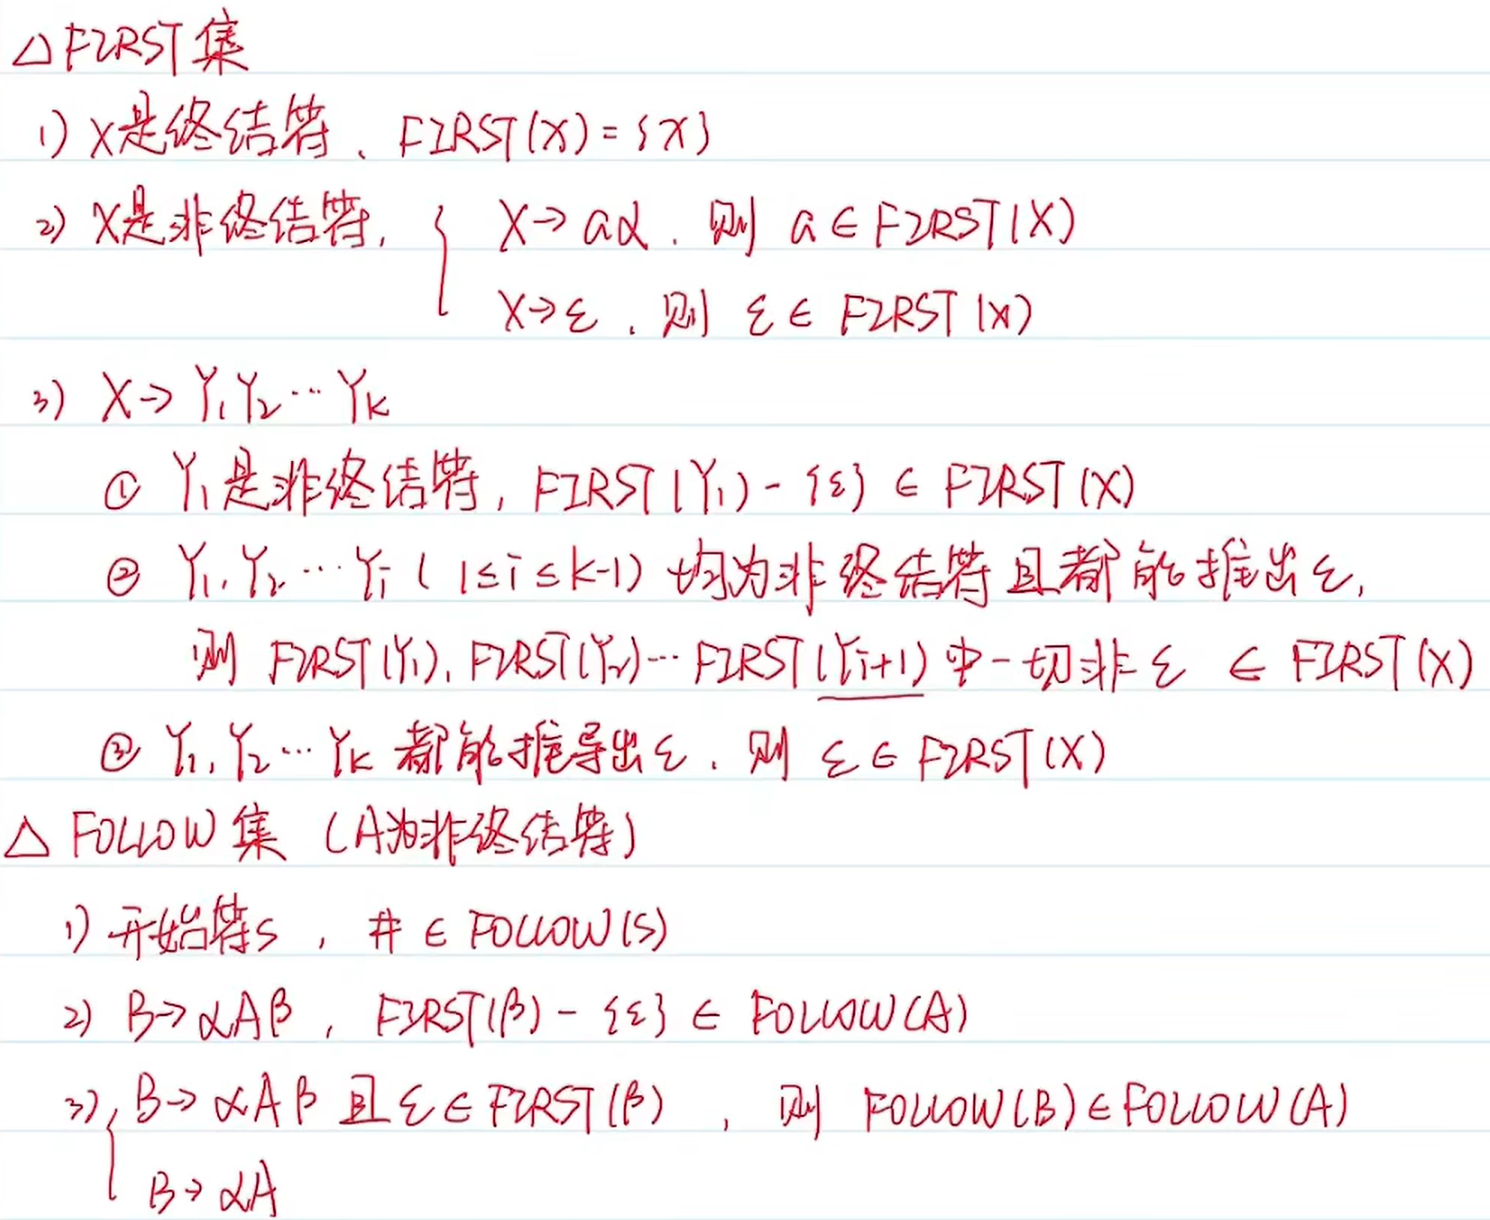 △ FIRST集
1) X是终结符、FIRST(X) = {X}
2) X是非终结符, { X→aα . 则 a ∈ FIRST(X)
X→ε . 则 ε ∈ FIRST(X)
3) X→Y₁Y₂…Yₖ
① Y₁是非终结符, FIRST(Y₁) - {ε} ∈ FIRST(X)
② Y₁,Y₂…Yᵢ ( 1≤i≤k-1) 均为非终结符且都能推出ε,
则 FIRST(Y₁), FIRST(Y₂)…FIRST(Yi+1) 中一切非ε ∈ FIRST(X)
③ Y₁,Y₂…Yₖ 都能推导出ε . 则 ε ∈ FIRST(X)
△ FOLLOW集 (A为非终结符)
1) 开始符S , # ∈ FOLLOW(S)
2) B→αAβ , FIRST(β) - {ε} ∈ FOLLOW(A)
3) { B→αAβ 且 ε ∈ FIRST(β) , 则 FOLLOW(B) ∈ FOLLOW(A)
B→αA